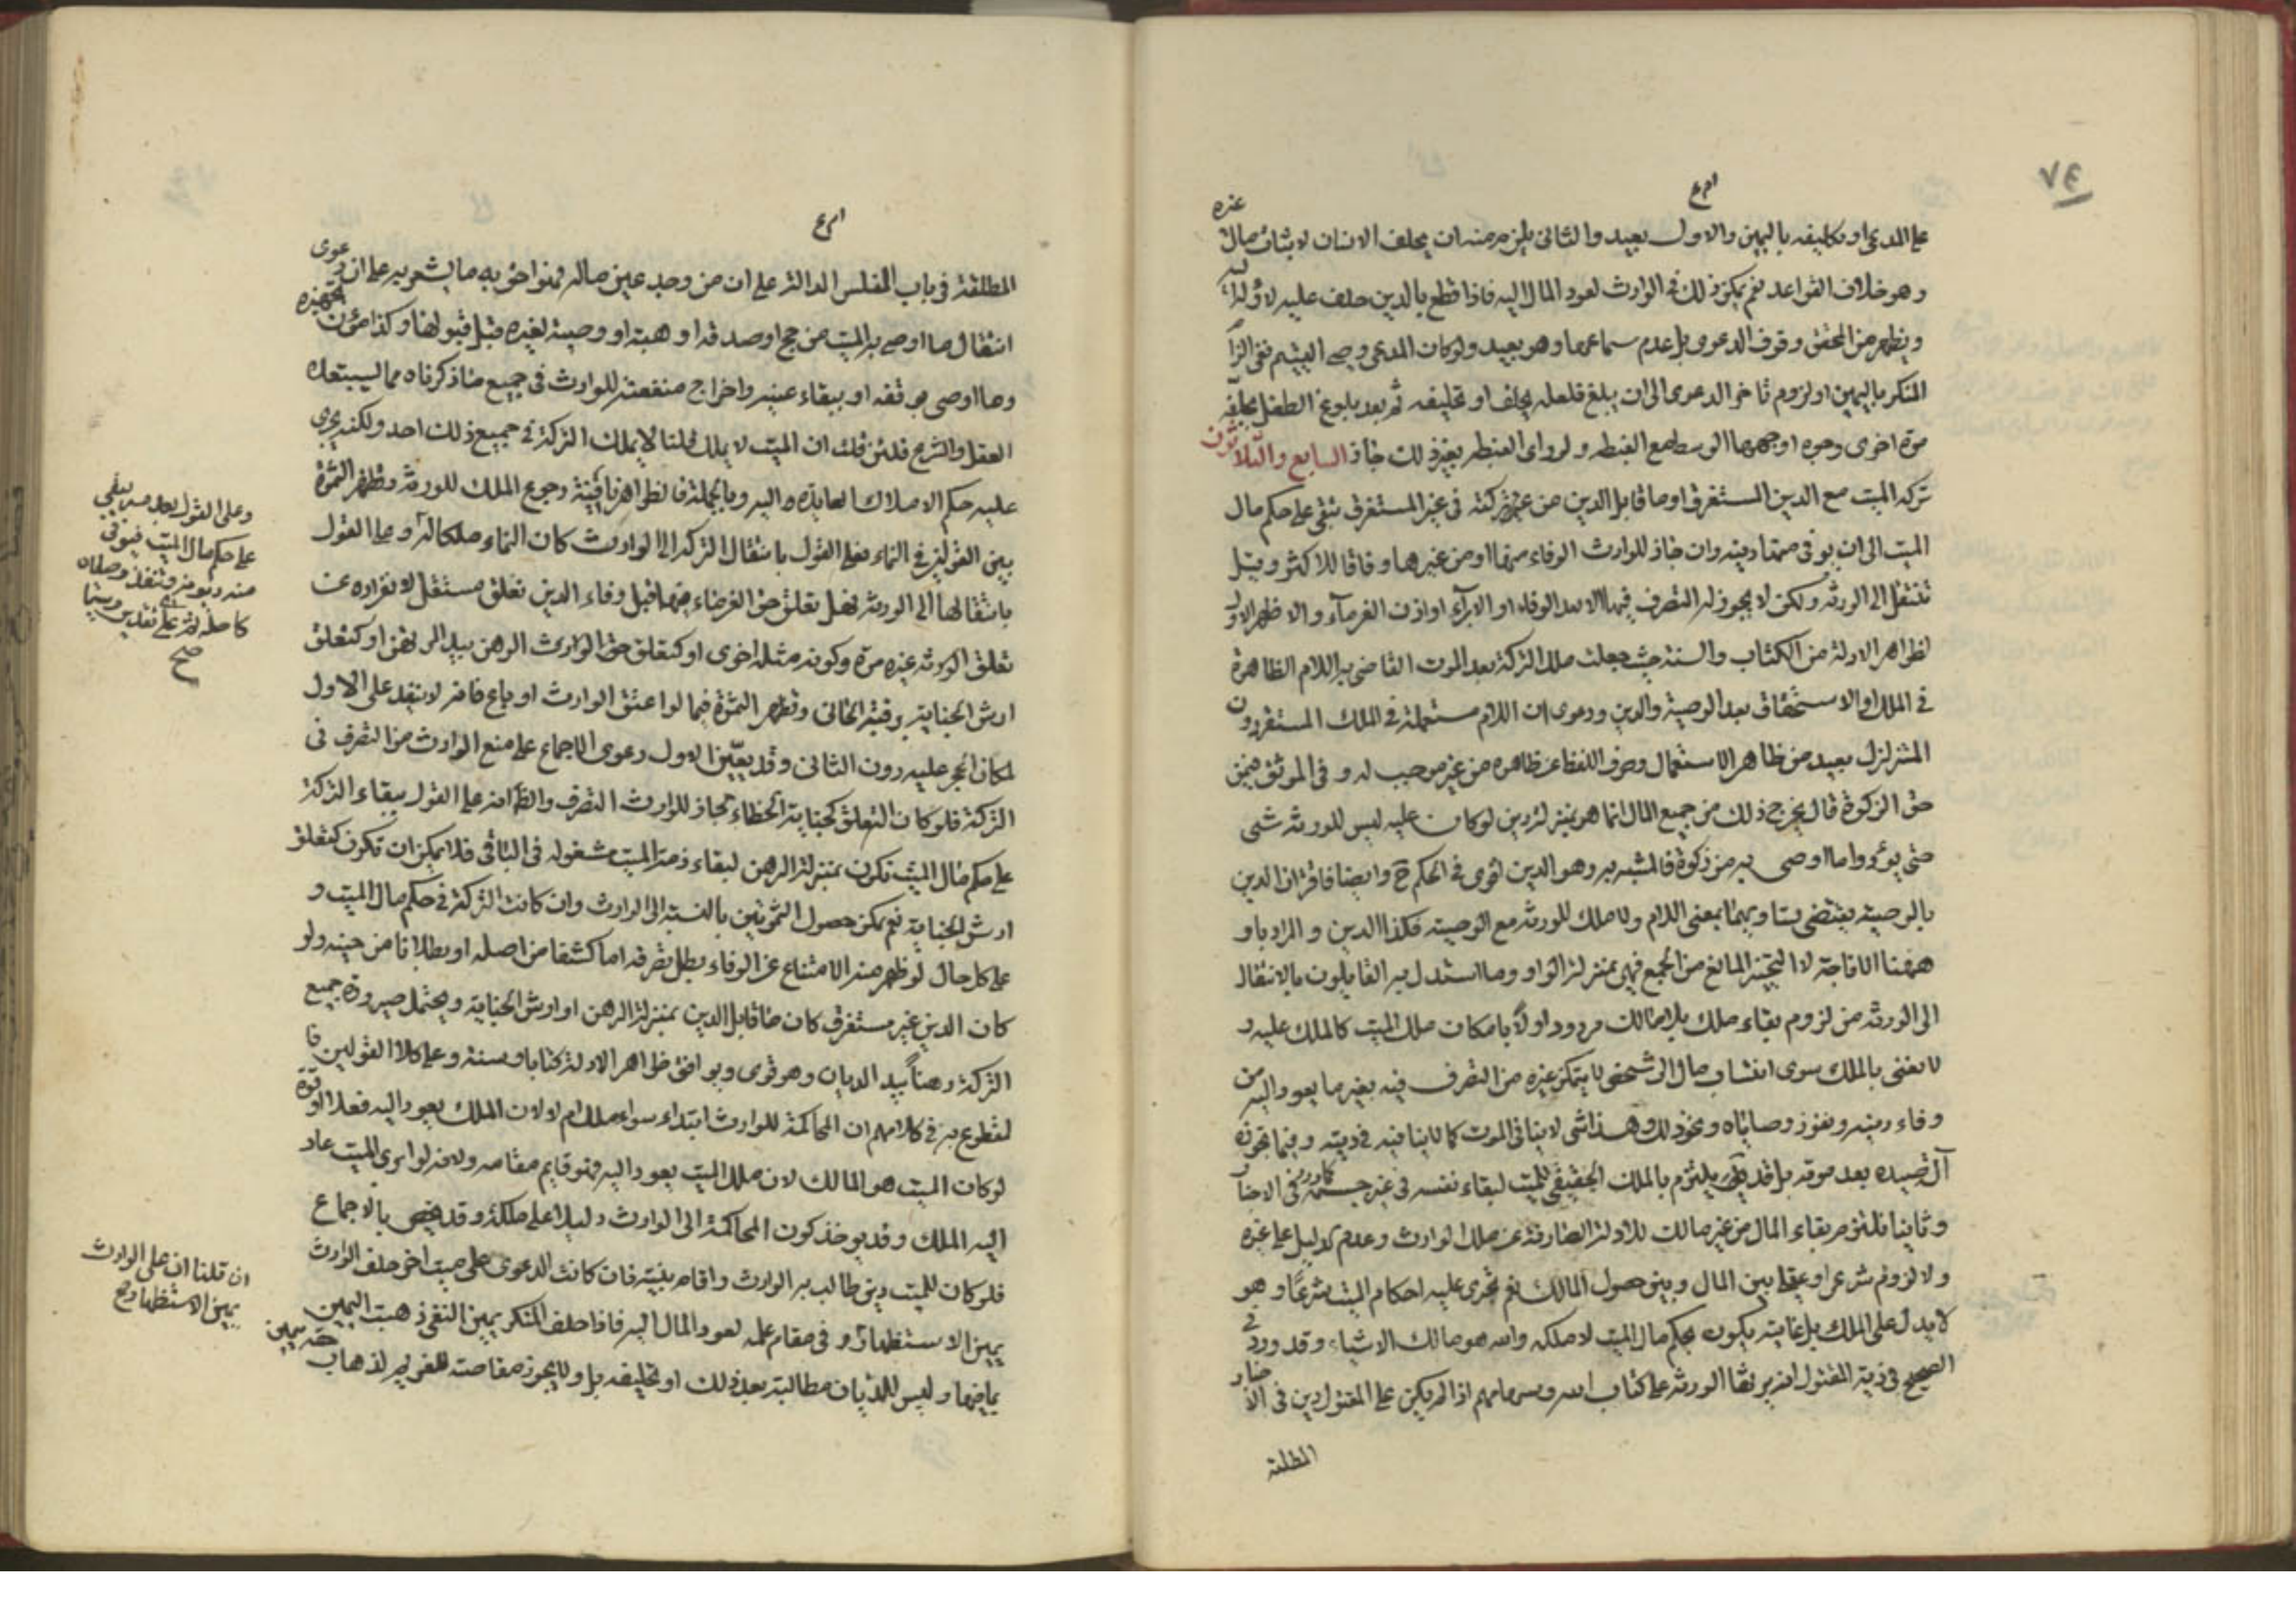 ٧٤
غيره
على المدعي او تكليفه باليمين والاول بعيد والثاني يلزم منه ان يحلف الانسان لاثبات مال
وهو خلاف القواعد نعم يمكن ذلك في الوارث لعود المال اليه فاذا قطع بالدين حلف عليه لاوله له
ويظهر من المحقق وقوف الدعوى بل عدم سماعها وهو بعيد ولو كان المدعي وصي اليتيم ففي الزا
المنكر باليمين او لزوم تاخر الدعوى الى ان يبلغ فلعله يحلف او تحليفه ثم بعد بلوغ الطفل يحلفه
مرة اخرى وجوه اوجهها الوسط مع الغبطه ولو راى الغبطه بغير ذلك جاز السابع والثلاثون
تركه الميت مع الدين المستغرق او ما قابل الدين من عين تركته في غير المستغرق تبقى على حكم مال
الميت الى ان يوفى عنها دينه وان جاز للوارث الوفاء منها او من غيرها وفاقا للاكثر وقيل
تنتقل الى الورثه ولكن لا يجوز له التصرف فيها الا بعد الوفاء او الابرآء او اذن الغرمآء والاظهر الاول
لظواهر الادلة من الكتاب والسنة حيث جعلت ملك التركة بعد الموت القاضي به اللام الظاهرة
في الملك والاستحقاق بعد الوصية والدين ودعوى ان اللام مستعملة في الملك المستقر دون
المتزلزل بعيد من ظاهر الاستعمال وصرف اللفظ عن ظاهره من غير موجب له وفي الموثق فيمن
حق الزكوة قال يخرج ذلك من جميع المال انما هو بمنزلة دين لو كان عليه ليس للورثه شي
حتى يؤدوا ما اوصى به من زكوة فالمشبه به وهو الدين اقوى في الحكم ح وايضا فاقتران الدين
بالوصية يقتضي تساويهما بمعنى اللام ولا ملك للورثه مع الوصيه فكذا الدين والمراد باو
ههنا الاباحة لا التخيير المانع من الجمع فهي بمنزلة الواو وما استدل به القايلون بالانتقال
الى الورثه من لزوم بقاء ملك بلا مالك مردود اولا بامكان ملك الميت كالملك عليه و
لا نعني بالملك سوى انتساب مال الى شخص لا يتمكن غيره من التصرف فيه بغير ما يعود اليه من
وفاء دينه ونفوز وصاياه ونحو ذلك وهذا شي لا ينافي الموت كما لا ينافيه في ديته وفيما تحرزه
آلة صيده بعد موته بل قد يلتزم بالملك الحقيقي للميت لبقاء نفسه في غير جسمه كما ورد في الاخبار
وثانيا نلتزم ببقاء المال من غير مالك للادلة الصارفة عن ملك الوارث وعدم الدليل على غيره
ولا لزوم شرعا وعقلا بين المال وبين حصول المالك نعم تجري عليه احكام الميت شرعا وهو
لا يدل على الملك بل غايته يكون بحكم مال الميت لا ملكه والله هو مالك الاشياء وقد ورد في
الصحيح في دية المقتول انه يرثها الورثه على كتاب الله وسهامهم اذا لم يكن على المقتول دين في الاخبار
المطلقة
المطلقة في باب المفلس الدالة على ان من وجد عين ماله فهو احق به ما يشعر به على ان دعوى
انتقال ما اوصى به الميت من حج او صدقة او هبة او وصية لغيره قبل قبولها وكذا مؤن تجهيزه
وما اوصى بوقفه او ببقاء عينه واخراج منفعته للوارث في جميع ما ذكرناه مما يستبعده
العقل والشرع فلئن قلت ان الميت لا يملك قلنا لا يملك التركة في جميع ذلك احد ولكنه يجري
عليه حكم الاملاك العايدة اليه وبالجملة فالظواهر نافية رجوع الملك للورثه وتظهر الثمرة
بين القولين في النماء فعلى القول بانتقال التركة الى الوارث كان النماء ملكا له وعلى القول
بانتقالها الى الورثه فهل تعلق حق الغرماء فيها قبل وفاء الدين تعلق مستقل لانفراده عن
تعلق الورثه غيره مرة وكونه مثله اخرى او كتعلق حق الوارث الرهن بيد المرتهن او كتعلق
ارش الجناية برقبة الجاني وتظهر الثمرة فيما لو اعتق الوارث او باع فانه لا ينفذ على الاول
لمكان الحجر عليه دون الثاني وقد يعين الاول دعوى الاجماع على منع الوارث من التصرف في
التركة فلو كان التعلق كجناية الخطاء لجاز للوارث التصرف والظ انه على القول ببقاء التركة
على حكم مال الميت تكون بمنزلة الرهن لبقاء ذمة الميت مشغوله في الباقي فلا يمكن ان تكون كتعلق
ارش الجناية نعم يمكن حصول الثمرتين بالنسبة الى الوارث وان كانت التركة في حكم مال الميت و
على كل حال لو ظهر منه الامتناع عن الوفاء بطل تصرفه اما كشفا من اصله او بطلانا من حينه ولو
كان الدين غير مستغرق كان ما قابل الدين بمنزلة الرهن او ارش الجناية ويحتمل صيرورة جميع
التركة رهنا بيد الديان وهو قوي ويوافق ظواهر الادلة كتابا وسنة وعلى كلا القولين فا
لمقطوع به في كلامهم ان المحاكمة للوارث ابتداء سواء ملك ام لا لان الملك يعود اليه فعلا او قوة
لو كان الميت هو المالك لان ملك الميت يعود اليه فهو قايم مقامه ولانه لو ابرى الميت عاد
اليه الملك وقد يؤخذ كون المحاكمة الى الوارث دليلا على ملكه وقد يخص بالاجماع
فلو كان للميت دين طالب به الوارث واقام بينته فان كانت الدعوى على ميت اخر حلف الوارث
يمين الاستظهار وفي مقام علمه لعود المال اليه فاذا حلف المنكر يمين النفي ذهبت اليمين
بما فيها وليس للديان مطالبته بعد ذلك او تحليفه بل ولا يجوز مقاصته للغريم لذهاب حقه بيمين
وعلى القول بعدمه يبقى
على حكم مال الميت فيوفى
منه ديونه وتنفذ وصاياه
صح
ان قلنا ان على الوارث
يمين الاستظهار صح